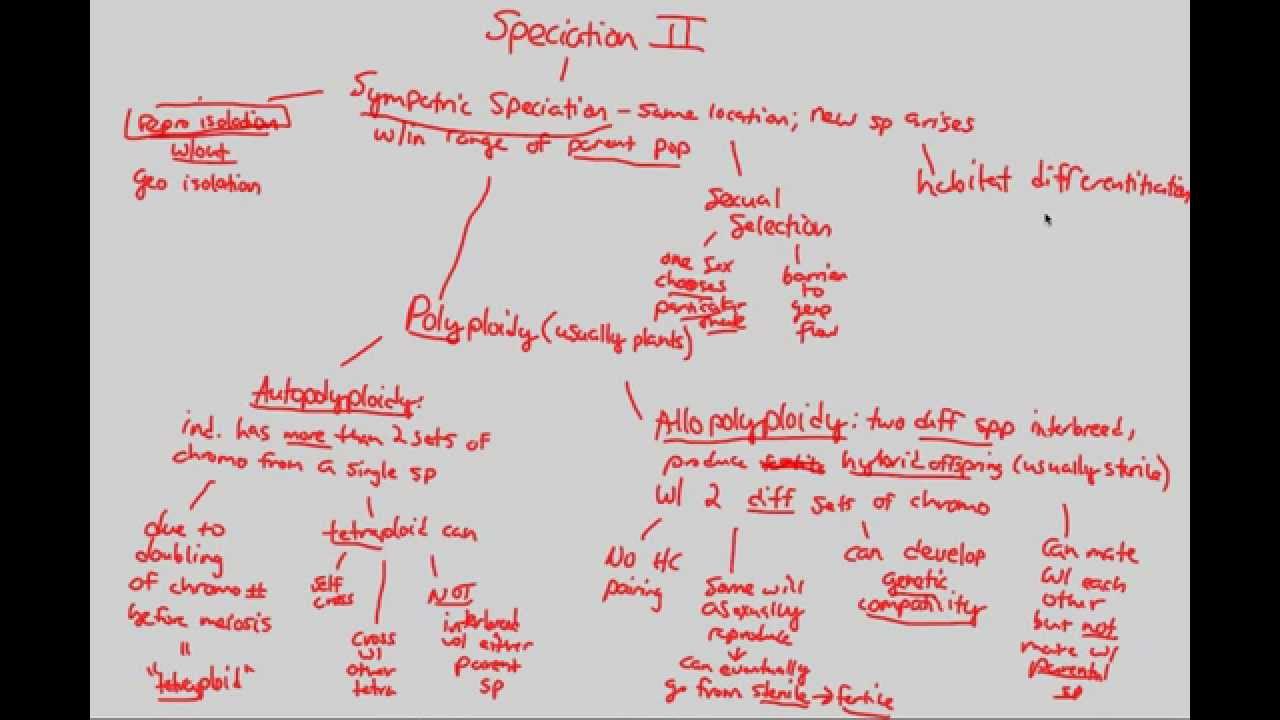 Speciation II
Sympatric Speciation - same location; new sp arises
w/in range of parent pop
repro isolation
w/out
geo isolation
Sexual
Selection
one sex
chooses
particular
mate
barrier
to
gene
flow
habitat differentiation
Polyploidy (usually plants)
Autopolyploidy:
ind. has more than 2 sets of
chromo from a single sp
due to
doubling
of chromo #
before meiosis
=
"tetraploid"
tetraploid can
self
cross
cross
w/
other
tetra
NOT
interbreed
w/ either
parent
sp
Allopolyploidy: two diff spp interbreed,
produce hybrid offspring (usually sterile)
w/ 2 diff sets of chromo
NO HC
pairing
Some will
asexually
reproduce
↓
can eventually
go from sterile → fertile
can develop
genetic
compatibility
Can mate
w/ each
other
but not
mate w/
parental
sp